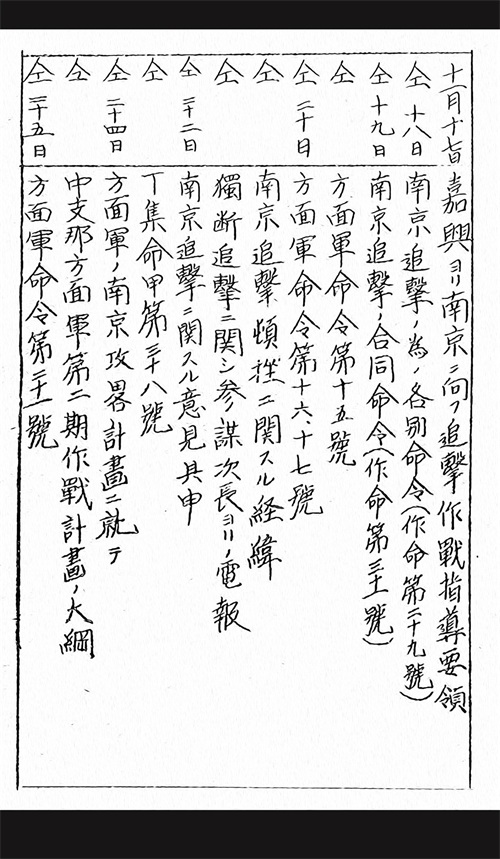 十一月十七日 嘉興ヨリ南京ニ向フ追撃作戰指導要領
仝 十八日 南京追撃ノ爲ノ各別命令(作命第二十九號)
仝 十九日 南京追撃ノ合同命令(作命第三十一號)
仝 方面軍命令第十五號
仝 二十日 方面軍命令第十六、十七號
仝 南京追撃頓挫ニ関スル経緯
仝 獨断追撃ニ関シ参謀次長ヨリノ電報
仝 二十二日 南京追撃ニ関スル意見具申
仝 丁集命甲第三十八號
仝 二十四日 方面軍ノ南京攻畧計畫ニ就テ
仝 中支那方面軍第二期作戰計畫ノ大綱
仝 二十五日 方面軍命令第二十一號